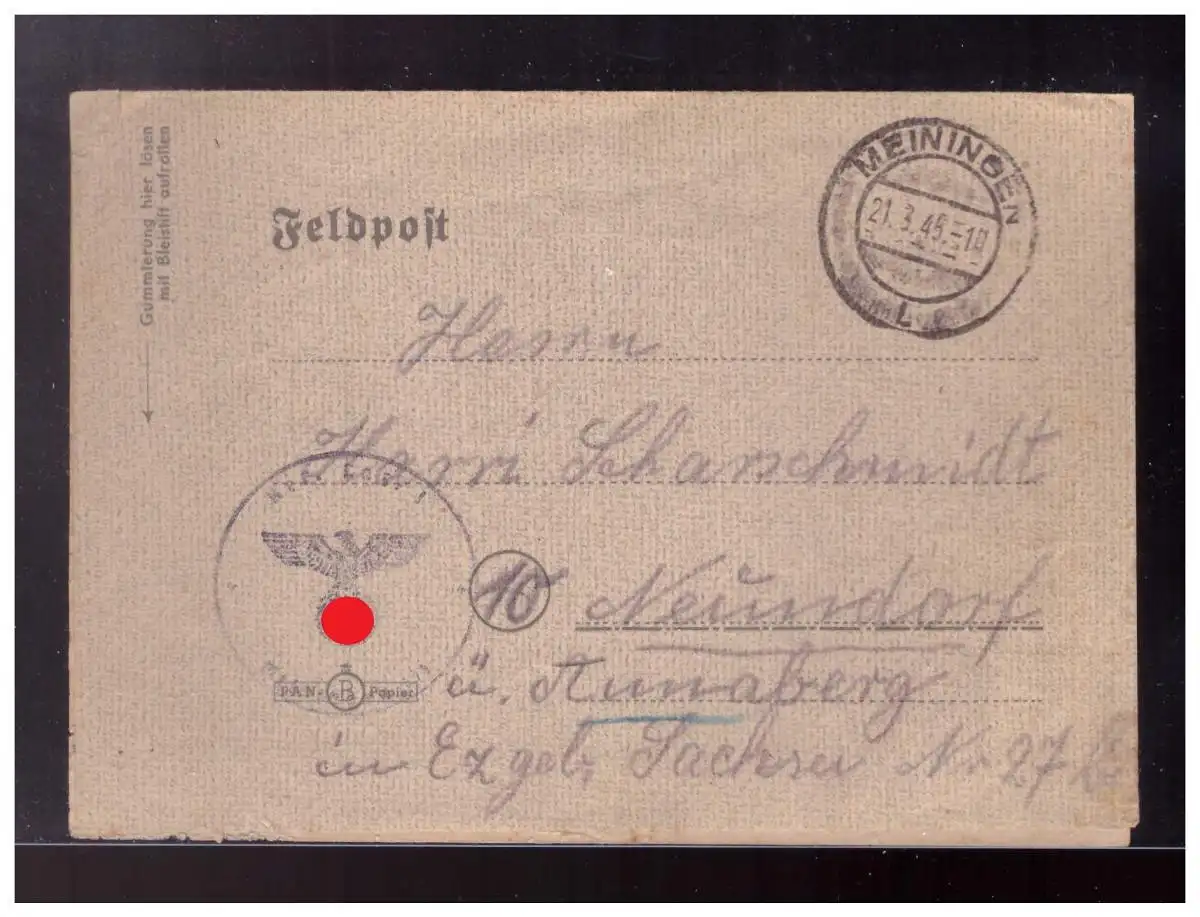 Gummierung hier lösen
mit Bleistift aufrollen
Feldpost
MEININGEN
21.3.45
L
Herrn
Harri Scharschmidt
10 Neundorf
ü. Annaberg
in Ezgeb. Sachsen Nr 27
PAN- Papier